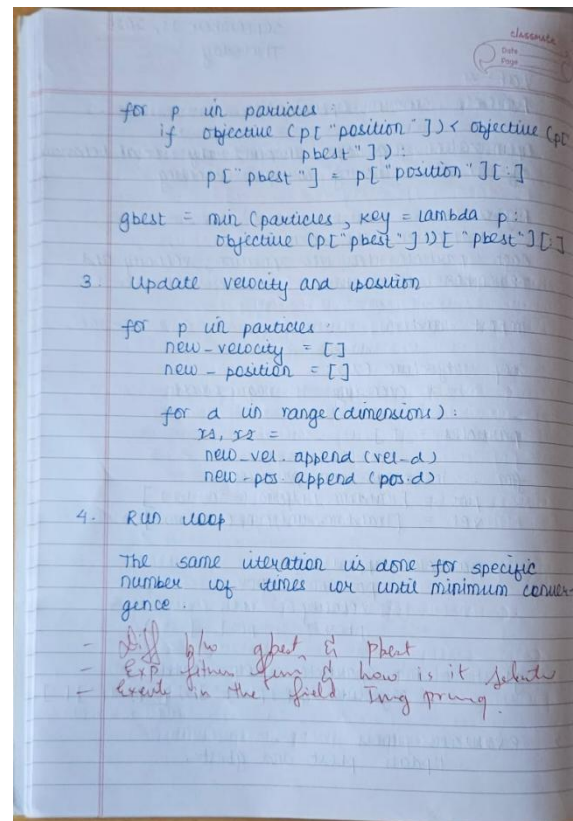 classmate
Date
Page
for p in particles :
if objective (p["position"]) < objective (p["
pbest"]) :
p["pbest"] = p["position"][:]
gbest = min (particles, key = lambda p :
objective (p["pbest"]))["pbest"][:]
3. Update velocity and position
for p in particles :
new_velocity = []
new_position = []
for d in range (dimensions) :
r1, r2 =
new_vel. append (vel-d)
new-pos. append (pos-d)
4. Run loop
The same iteration is done for specific
number of times or until minimum conver-
gence.
- Diff b/w gbest & Pbest
- Exp fitness & how is it
- Execute in the field Img